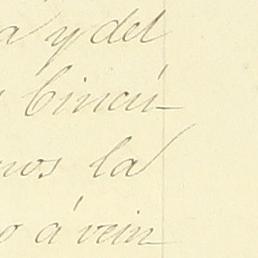 a y del
Cincú-
nos la
o á vein